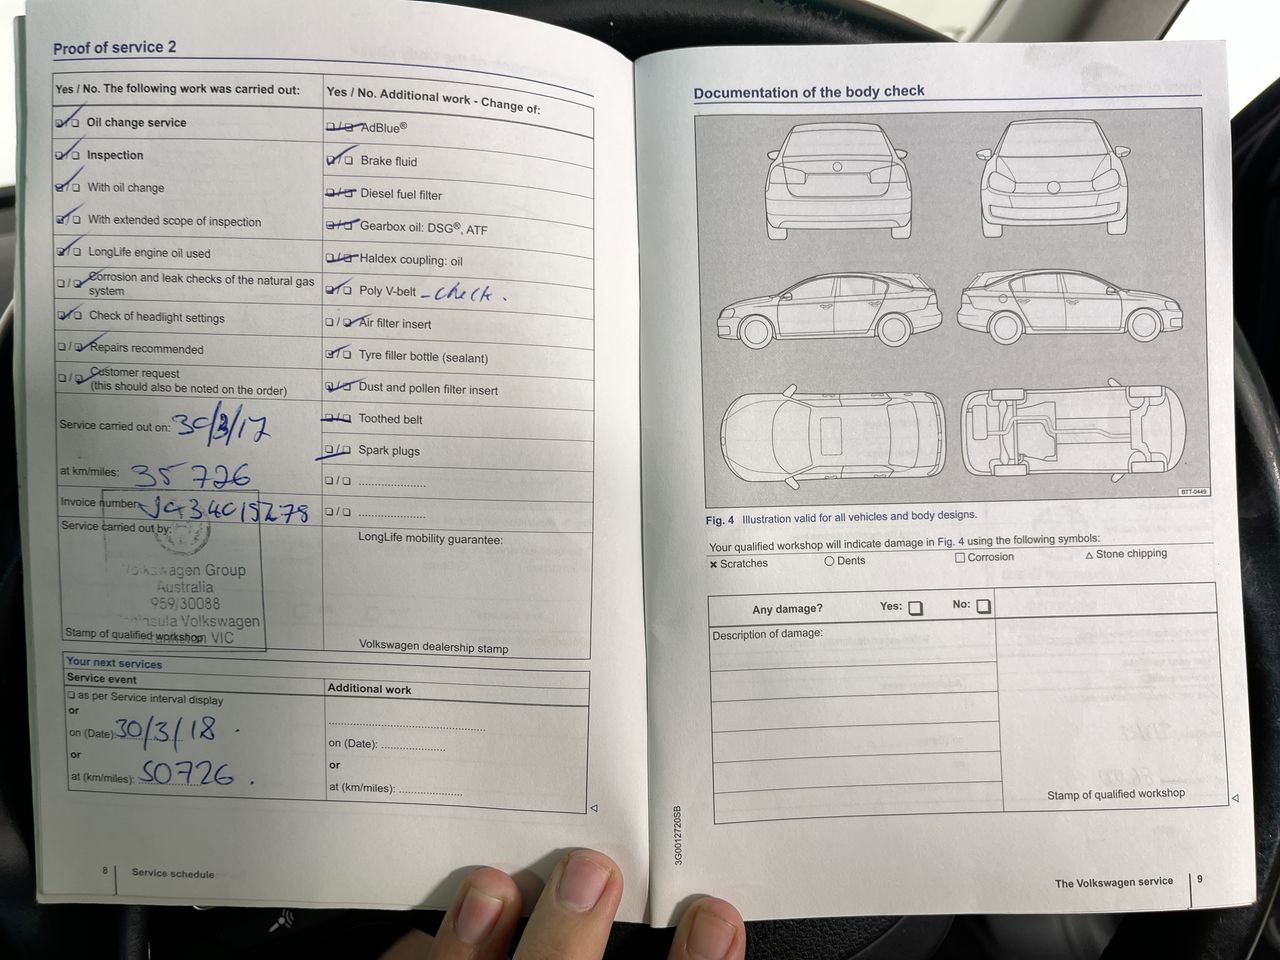 Proof of service 2
Yes / No. The following work was carried out:
Oil change service
Inspection
With oil change
With extended scope of inspection
LongLife engine oil used
Corrosion and leak checks of the natural gas
system
Check of headlight settings
Repairs recommended
Customer request
(this should also be noted on the order)
Service carried out on: 30/3/17
at km/miles: 35 726
Invoice number:
Service carried out by:
Volkswagen Group
Australia
959/30088
Peninsula Volkswagen
VIC
Stamp of qualified workshop
Yes / No. Additional work - Change of:
AdBlue®
Brake fluid
Diesel fuel filter
Gearbox oil: DSG®, ATF
Haldex coupling: oil
Poly V-belt - check.
Air filter insert
Tyre filler bottle (sealant)
Dust and pollen filter insert
Toothed belt
Spark plugs
LongLife mobility guarantee:
Volkswagen dealership stamp
Your next services
Service event
as per Service interval display
or
on (Date): 30/3/18 .
or
at (km/miles): 50726 .
Additional work
on (Date):
or
at (km/miles):
8 Service schedule
Documentation of the body check
BTT-0449
Fig. 4 Illustration valid for all vehicles and body designs.
Your qualified workshop will indicate damage in Fig. 4 using the following symbols:
Scratches Dents Corrosion Stone chipping
Any damage? Yes: No:
Description of damage:
Stamp of qualified workshop
3G0012720SB
The Volkswagen service 9